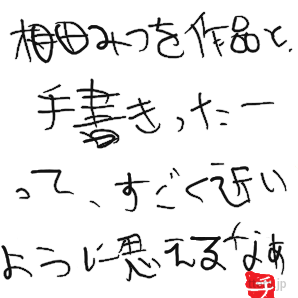 相田みつを作品と、
手書きったー
って、すごく近い
ように思えるなぁ
チ
JP